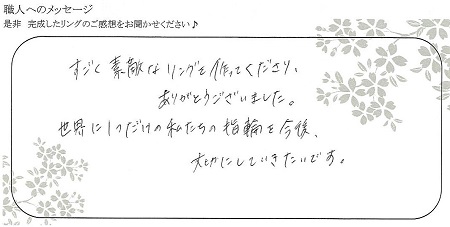 職人へのメッセージ
是非 完成したリングのご感想をお聞かせください♪
すごく素敵なリングを作ってくださり、
ありがとうございました。
世界に1つだけの私たちの指輪を今後、
大切にしていきたいです。